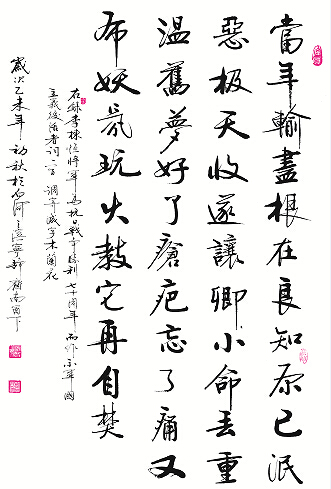 當年輸盡根在良知原已泯
惡极天收遂讓卿小命丟重
溫舊夢好了瘡疤忘了痛又
布妖氛玩火教它再自焚
在録李棟恒將軍為抗日戰争勝利七十周年而作示軍國
主義復活者詞一首調寄减字木蘭花
歲次乙未年初秋於